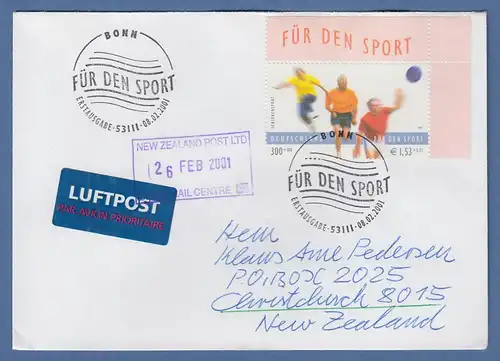 BONN
FÜR DEN SPORT
ERSTAUSGABE·53111·08.02.2001
FÜR DEN SPORT
DEUTSCHLAND
FÜR DEN SPORT
300
€ 1,53
BONN
FÜR DEN SPORT
ERSTAUSGABE·53111·08.02.2001
NEW ZEALAND POST LTD
26 FEB 2001
MAIL CENTRE
LUFTPOST
PAR AVION PRIORITAIRE
Herrn
Klaus Arne Pedersen
P.O.BOX 2025
Christchurch 8015
New Zealand